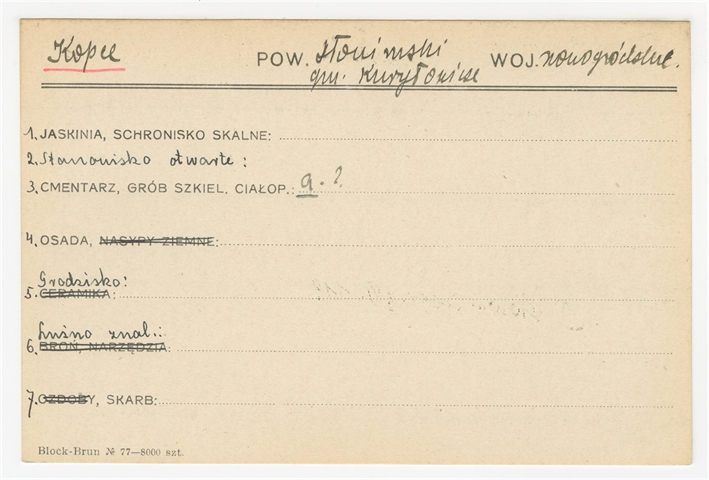 Kopce POW. Słonimski WOJ. nowogródzkie.
gm. Kuryłowicze
1. JASKINIA, SCHRONISKO SKALNE:
2. Stanowisko otwarte:
3. CMENTARZ, GRÓB SZKIEL, CIAŁOP.: a. ?
4. OSADA, NASYPY ZIEMNE:
Grodzisko:
5. CERAMIKA:
Luźno znal.:
6. BROŃ, NARZĘDZIA:
7. OZDOBY, SKARB:
Block-Brun № 77—8000 szt.